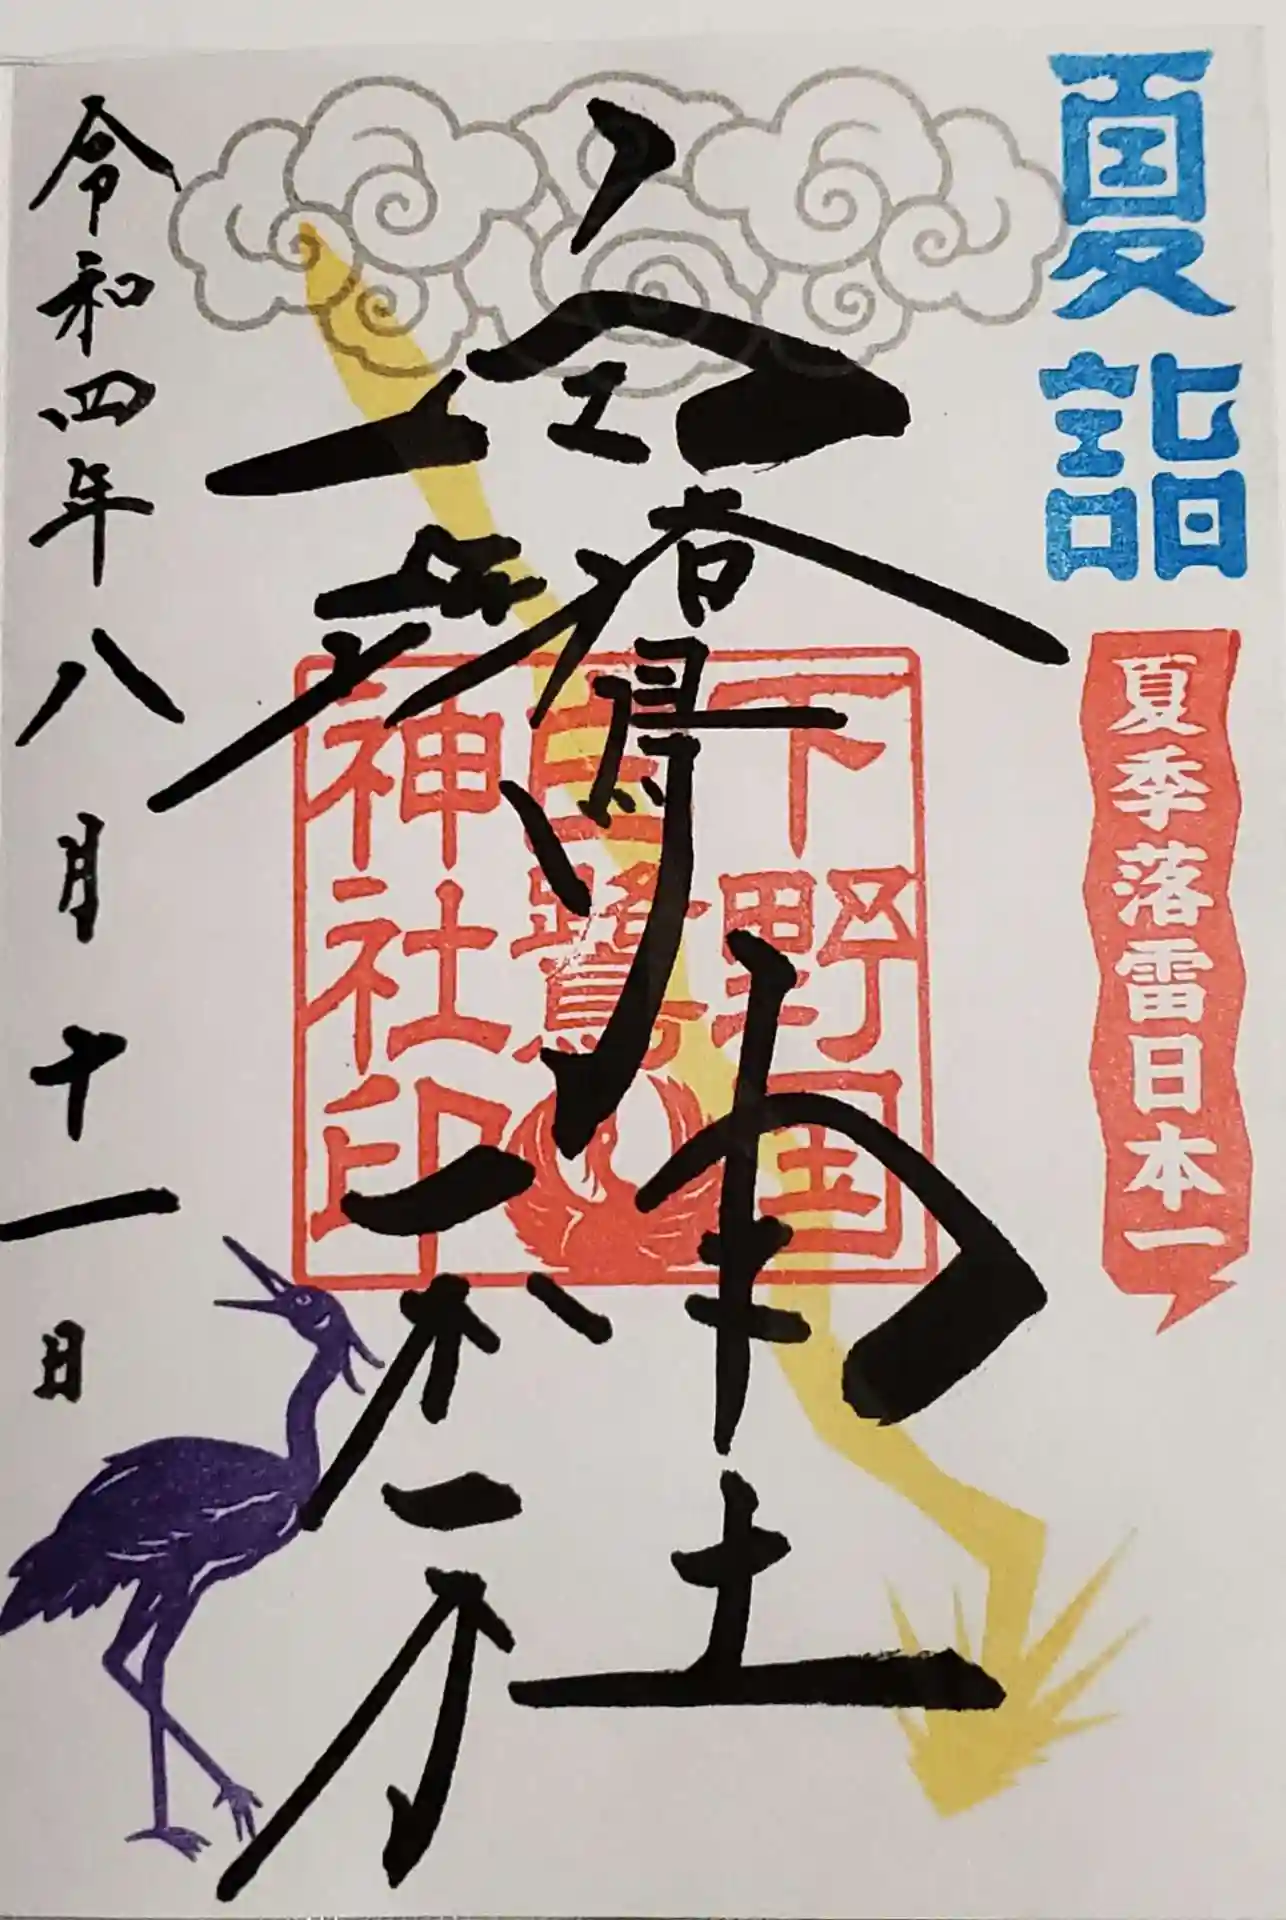 夏詣
夏季落雷日本一
下野国
白鷺
神社印
白鷺神社
令和四年八月十一日